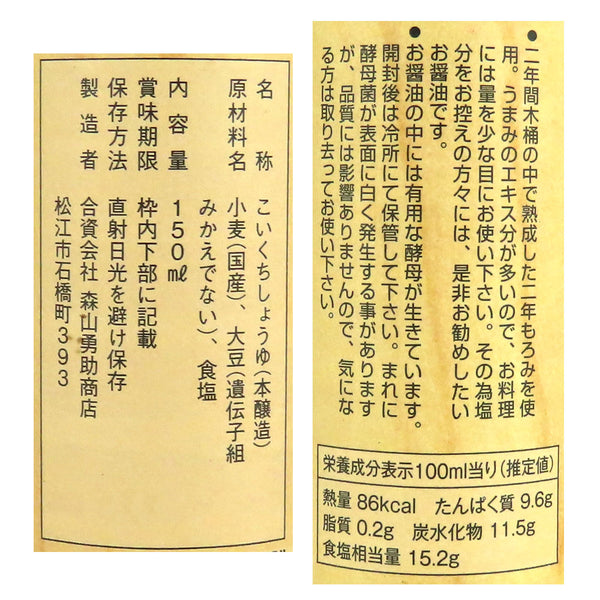 名称 こいくちしょうゆ(本醸造)
原材料名 小麦(国産)、大豆(遺伝子組
みかえでない)、食塩
内容量 150㎖
賞味期限 枠内下部に記載
保存方法 直射日光を避け保存
製造者 合資会社 森山勇助商店
松江市石橋町393
●二年間木桶の中で熟成した二年もろみを使
用。うまみのエキス分が多いので、お料理
には量を少な目にお使い下さい。その為塩
分をお控えの方々には、是非お勧めしたい
お醤油です。
●お醤油の中には有用な酵母が生きています。
開封後は冷所にて保管して下さい。まれに
酵母菌が表面に白く発生する事があります
が、品質には影響ありませんので、気にな
る方は取り去ってお使い下さい。
栄養成分表示100ml当り(推定値)
熱量 86kcal たんぱく質 9.6g
脂質 0.2g 炭水化物 11.5g
食塩相当量 15.2g